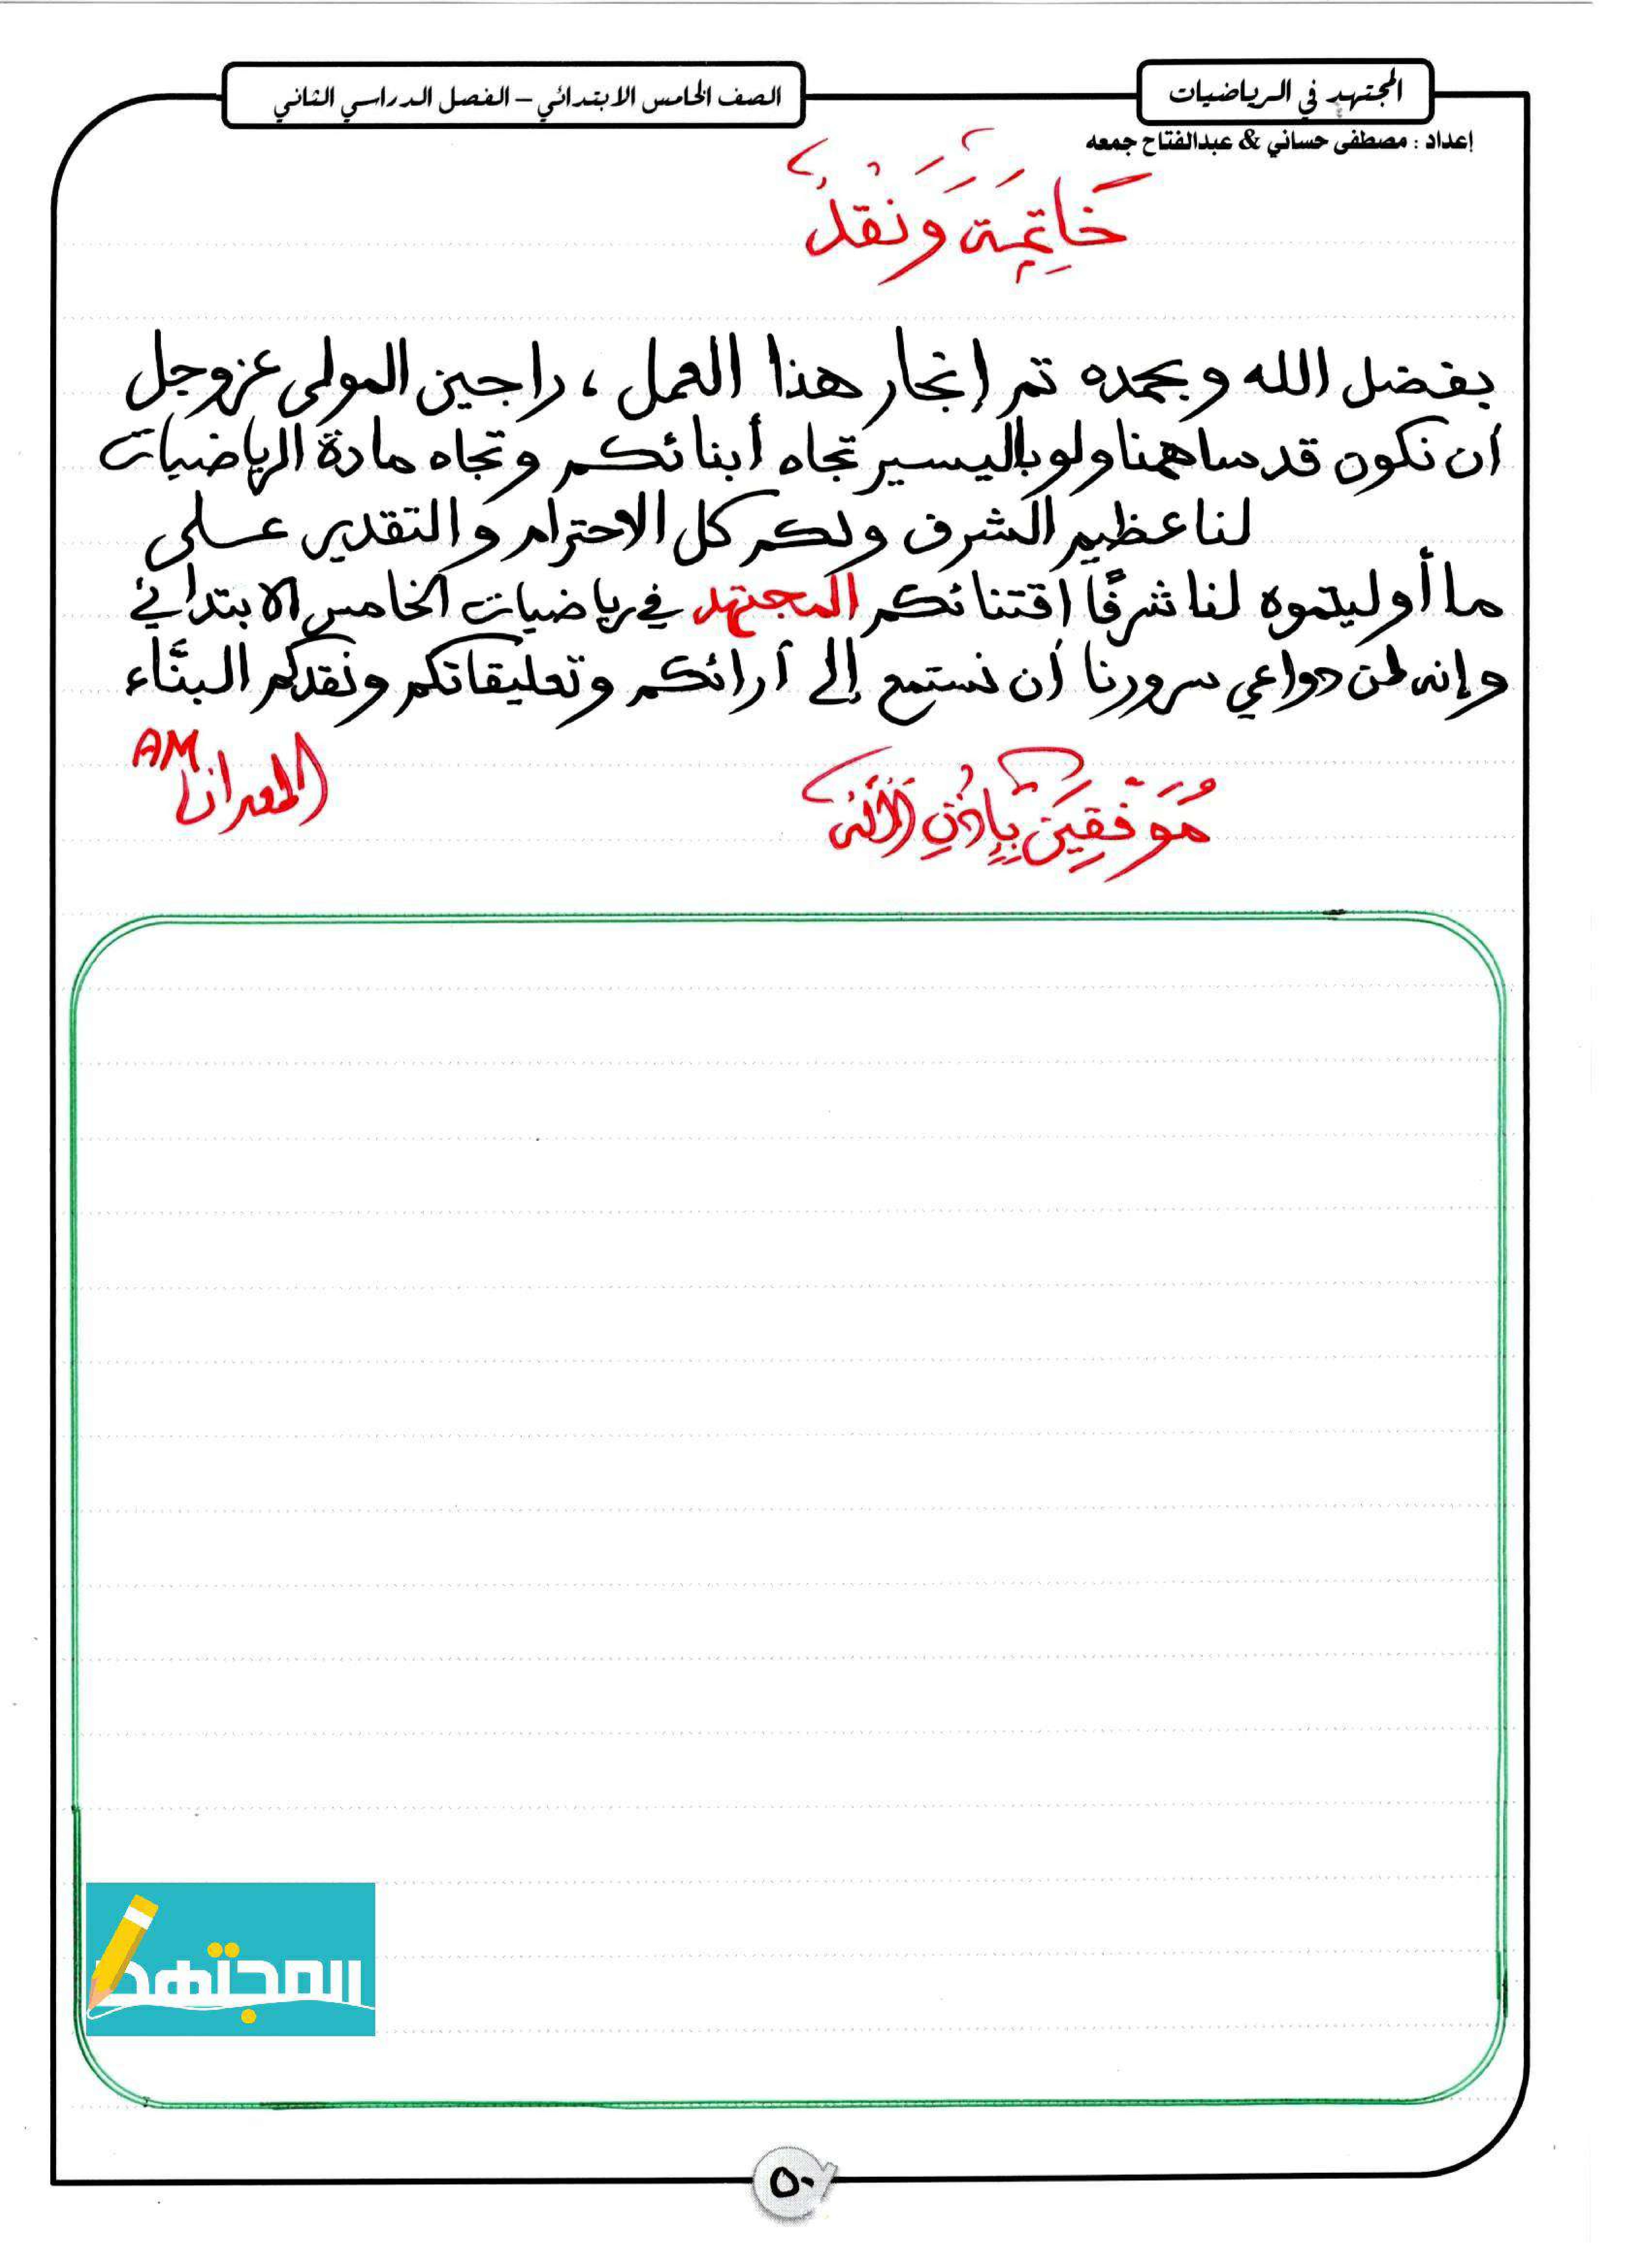 المجتهد في الرياضيات
الصف الخامس الابتدائي – الفصل الدراسي الثاني
إعداد : مصطفى حساني & عبدالفتاح جمعه
خَاتِمَة وَنَقْدٌ
بفضل الله وبحمده تم إنجاز هذا العمل ، راجين المولى عز وجل
أن نكون قد ساهمنا ولو باليسير تجاه أبنائكم وتجاه مادة الرياضيات
لنا عظيم الشرف ولكم كل الاحترام والتقدير على
ما أوليتموه لنا شرفًا اقتنائكم المجتهد في رياضيات الخامس الابتدائي
وإنه لمن دواعي سرورنا أن نستمع إلى آرائكم وتعليقاتكم ونقدكم البنَّاء
مُوَفَّقِينَ بِإِذْنِ اللَّه
المعدان AM
المجتهد
٥٠